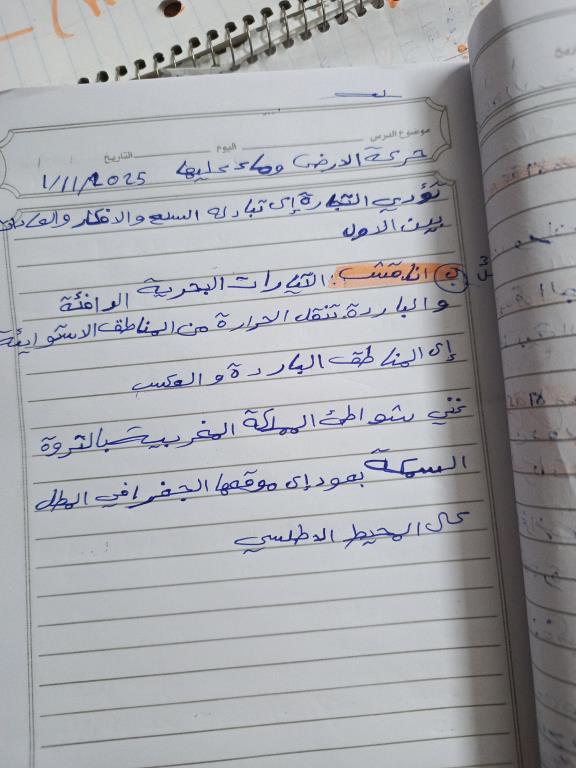 موضوع الدرس اليوم التاريخ / /
حركة الارض وماء عليها 1/11/2025
تؤدي التجارة إلى تبادله السلع والافكار والعادات
بين الدول
ب اناقش: التيارات البحرية الدافئة
والباردة تنقل الحرارة من المناطق الاستوائية
إلى المناطق الباردة والعكس
غني شواطئ المملكة المغربية بالثروة
السمكة يعود إلى موقعها الجغرافي المطل
على المحيط الاطلسي